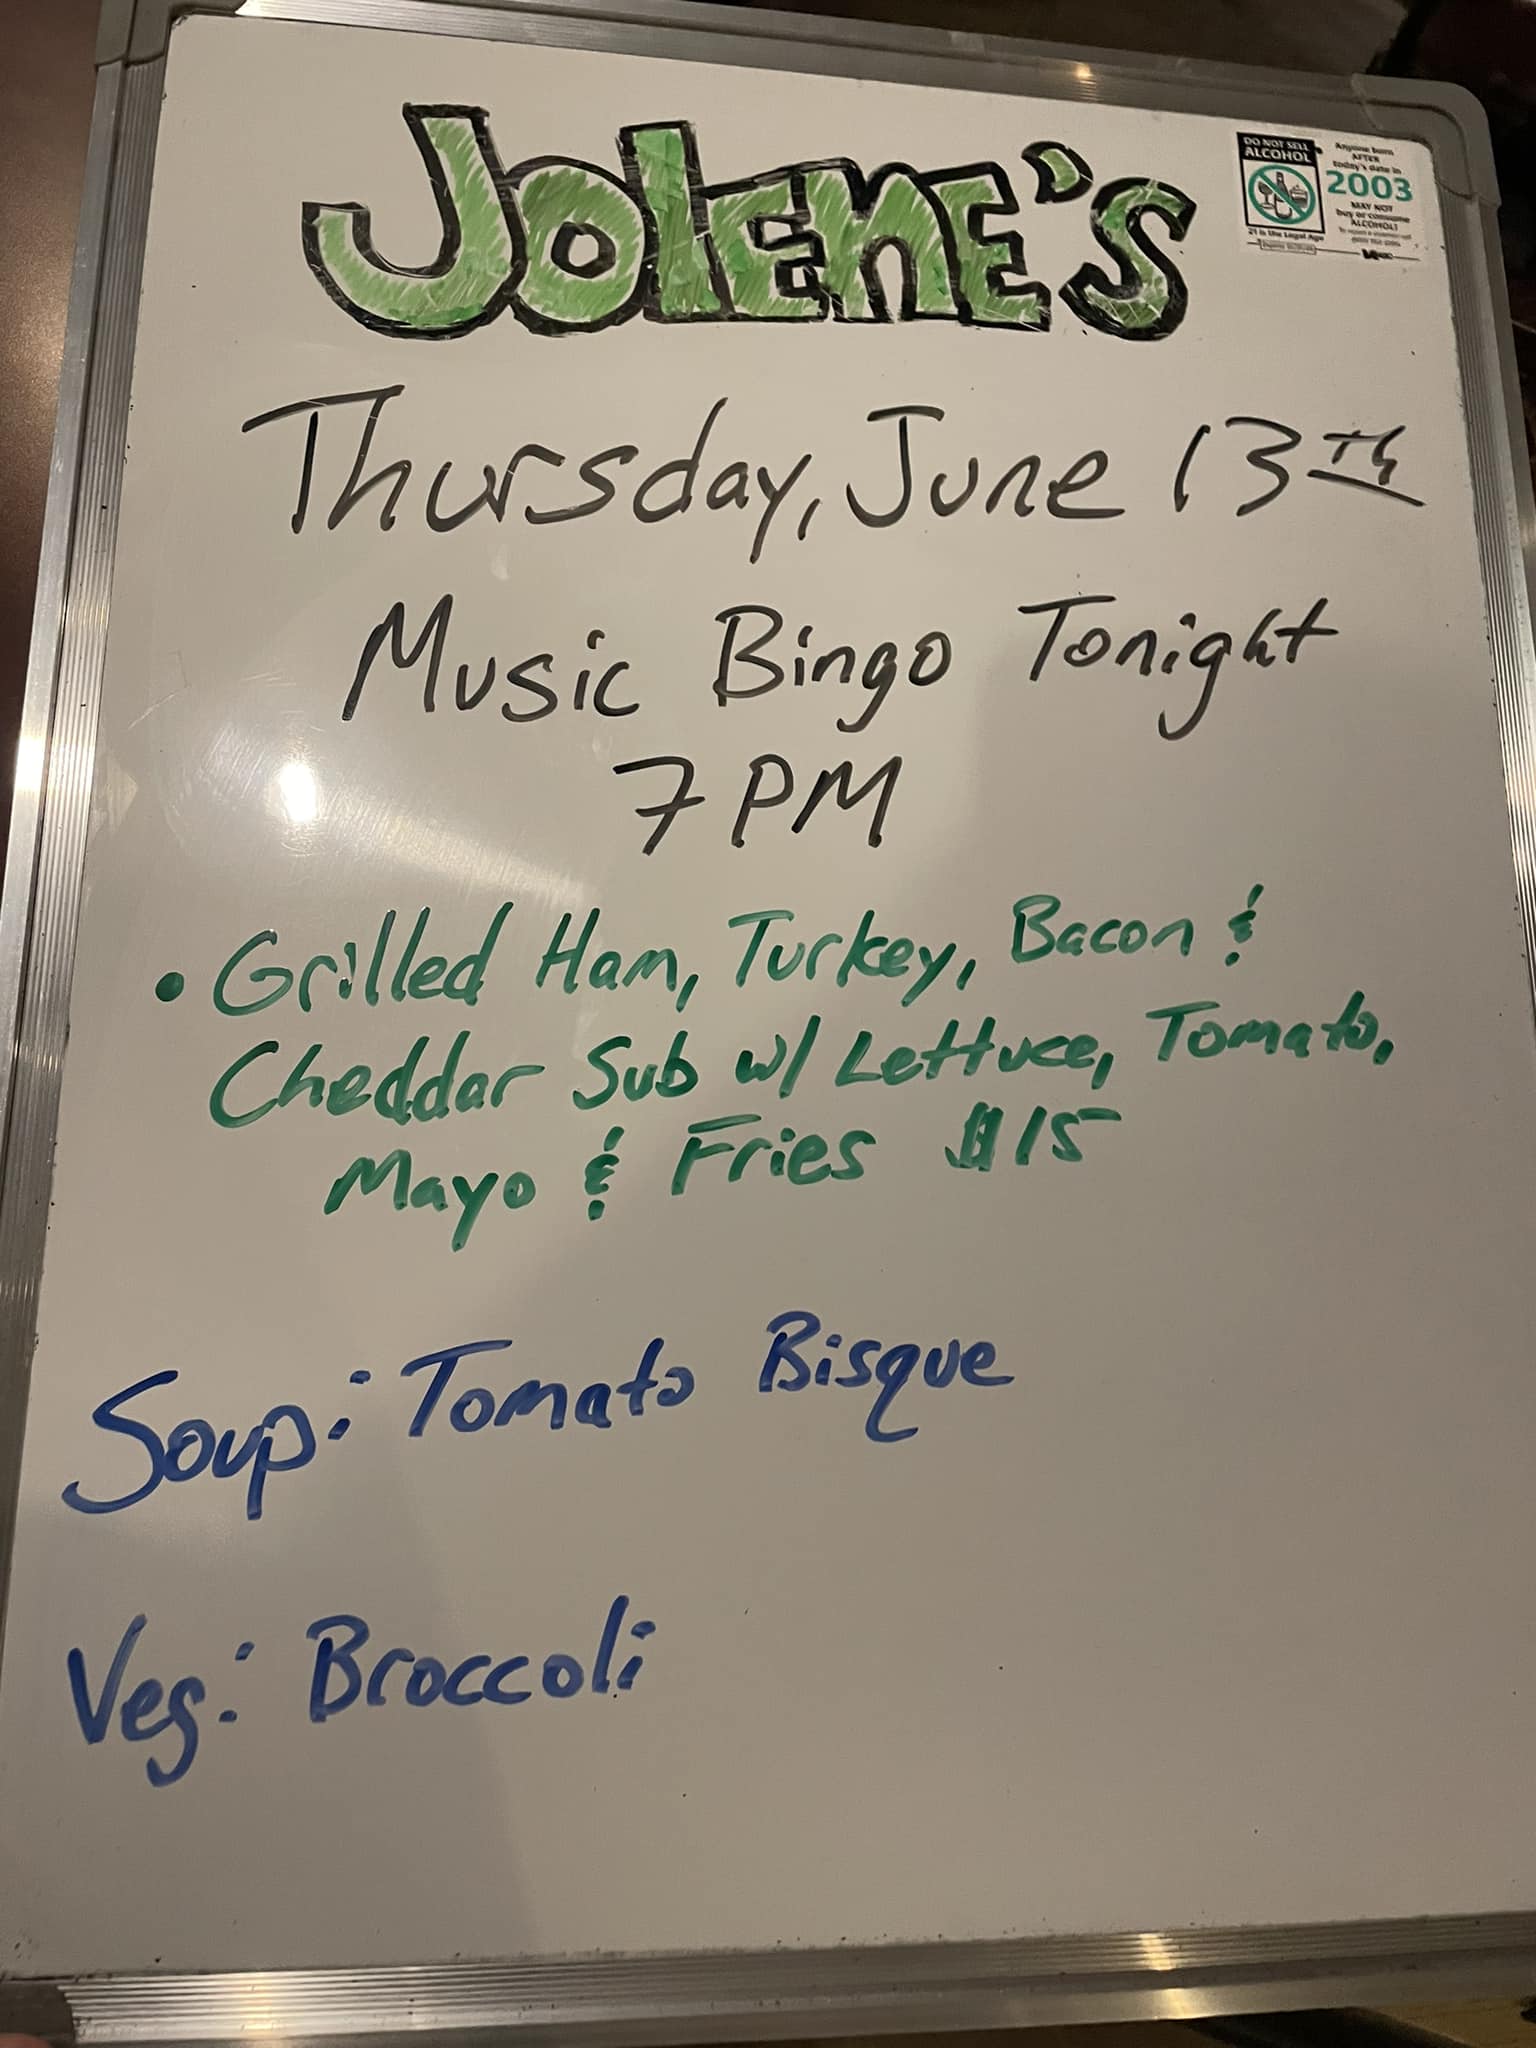 JOLENE'S
DO NOT SELL
ALCOHOL
21 is the Legal Age
Anyone born
AFTER
today's date in
2003
MAY NOT
buy or consume
ALCOHOL!
Thursday, June 13Th
Music Bingo Tonight
7 PM
• Grilled Ham, Turkey, Bacon &
Cheddar Sub w/ Lettuce, Tomato,
Mayo & Fries $15
Soup: Tomato Bisque
Veg: Broccoli